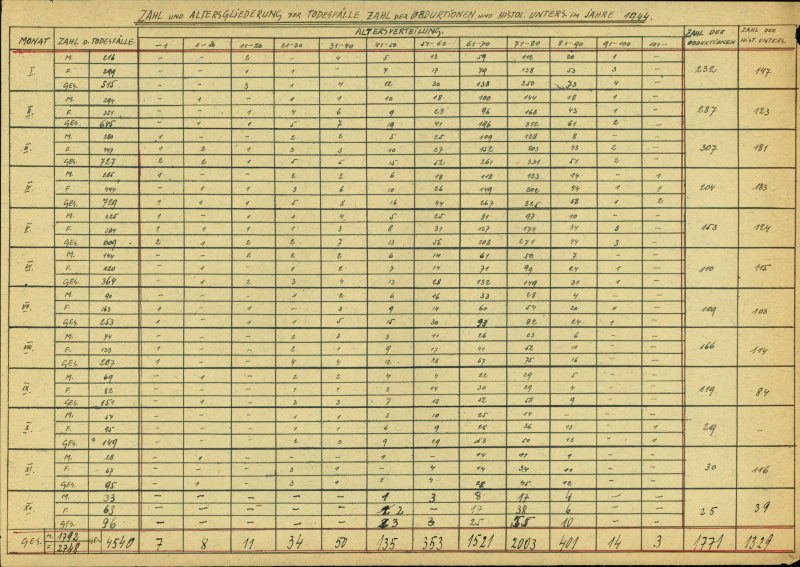 ZAHL UND ALTERSGLIEDERUNG DER TODESFÄLLE ZAHL DER OBDUKTIONEN UND HISTOL. UNTERS. IM JAHRE 1944.
ALTERSVERTEILUNG.
MONAT ZAHL D. TODESFÄLLE. -1 1-10 11-20 21-30 31-40 41-50 51-60 61-70 71-80 81-90 91-100 101- ZAHL DER OBDUKTIONEN ZAHL DER HIST. UNTERS.
I. M. 216 - - 2 - 4 5 13 59 112 20 1 -
F. 299 - - 1 1 - 7 17 79 138 53 3 - 232 147
GES. 515 - - 3 1 4 12 30 138 250 73 4 -
II. M. 294 - 1 - 1 1 10 18 100 144 18 1 -
F. 351 - - 1 4 6 9 23 96 168 43 1 - 287 123
GES. 645 - 1 1 5 7 19 41 196 312 61 2 -
III. M. 280 1 - - 2 2 5 25 109 128 8 - -
F. 447 1 2 1 3 3 10 27 152 203 43 2 - 307 181
GES. 727 2 2 1 5 5 15 52 261 331 51 2 -
IV. M. 285 1 - - 2 2 6 18 118 123 14 - 1
F. 444 - 1 1 3 6 10 26 149 202 44 1 1 204 183
GES. 729 1 1 1 5 8 16 44 267 325 58 1 2
V. M. 225 1 - 1 1 4 5 25 81 97 10 - -
F. 384 1 1 1 1 3 8 31 127 174 34 3 - 153 124
GES. 609 2 1 2 2 7 13 56 208 271 44 3 -
VI. M. 144 - - 2 2 2 6 14 61 50 7 - -
F. 220 - 1 - 1 2 7 14 71 99 24 1 - 110 115
GES. 364 - 1 2 3 4 13 28 132 149 31 1 -
VII. M. 90 - - - 1 2 6 16 33 28 4 - -
F. 163 1 - 1 - 3 9 14 60 54 20 1 - 109 103
GES. 253 1 - 1 1 5 15 30 93 82 24 1 -
VIII. M. 74 - - - 2 3 3 11 26 23 6 - -
F. 133 1 - - 2 1 9 17 41 52 10 - - 166 114
GES. 207 1 - - 4 4 12 28 67 75 16 - -
IX. M. 69 - 1 - 2 2 4 4 22 29 5 - -
F. 82 - - - 1 1 3 14 30 29 4 - - 119 84
GES. 151 - 1 - 3 3 7 18 52 58 9 - -
X. M. 54 - - - 1 1 3 10 25 14 - - -
F. 95 - - - 1 1 6 9 28 36 13 - 1 29 -
GES. 149 - - - 2 2 9 19 53 50 13 - 1
XI. M. 28 - 1 - - - 1 - 14 11 1 - -
F. 67 - - - 3 1 - 4 14 34 11 - - 30 116
GES. 95 - 1 - 3 1 1 4 28 45 12 - -
XII. M. 33 - - - - - 1 3 8 17 4 - -
F. 63 - - - - - 2 - 17 38 6 - - 25 39
GES. 96 - - - - - 3 3 25 55 10 - -
GES. M. 1792 F. 2748 GES. 4540 7 8 11 34 50 135 353 1521 2003 401 14 3 1771 1329